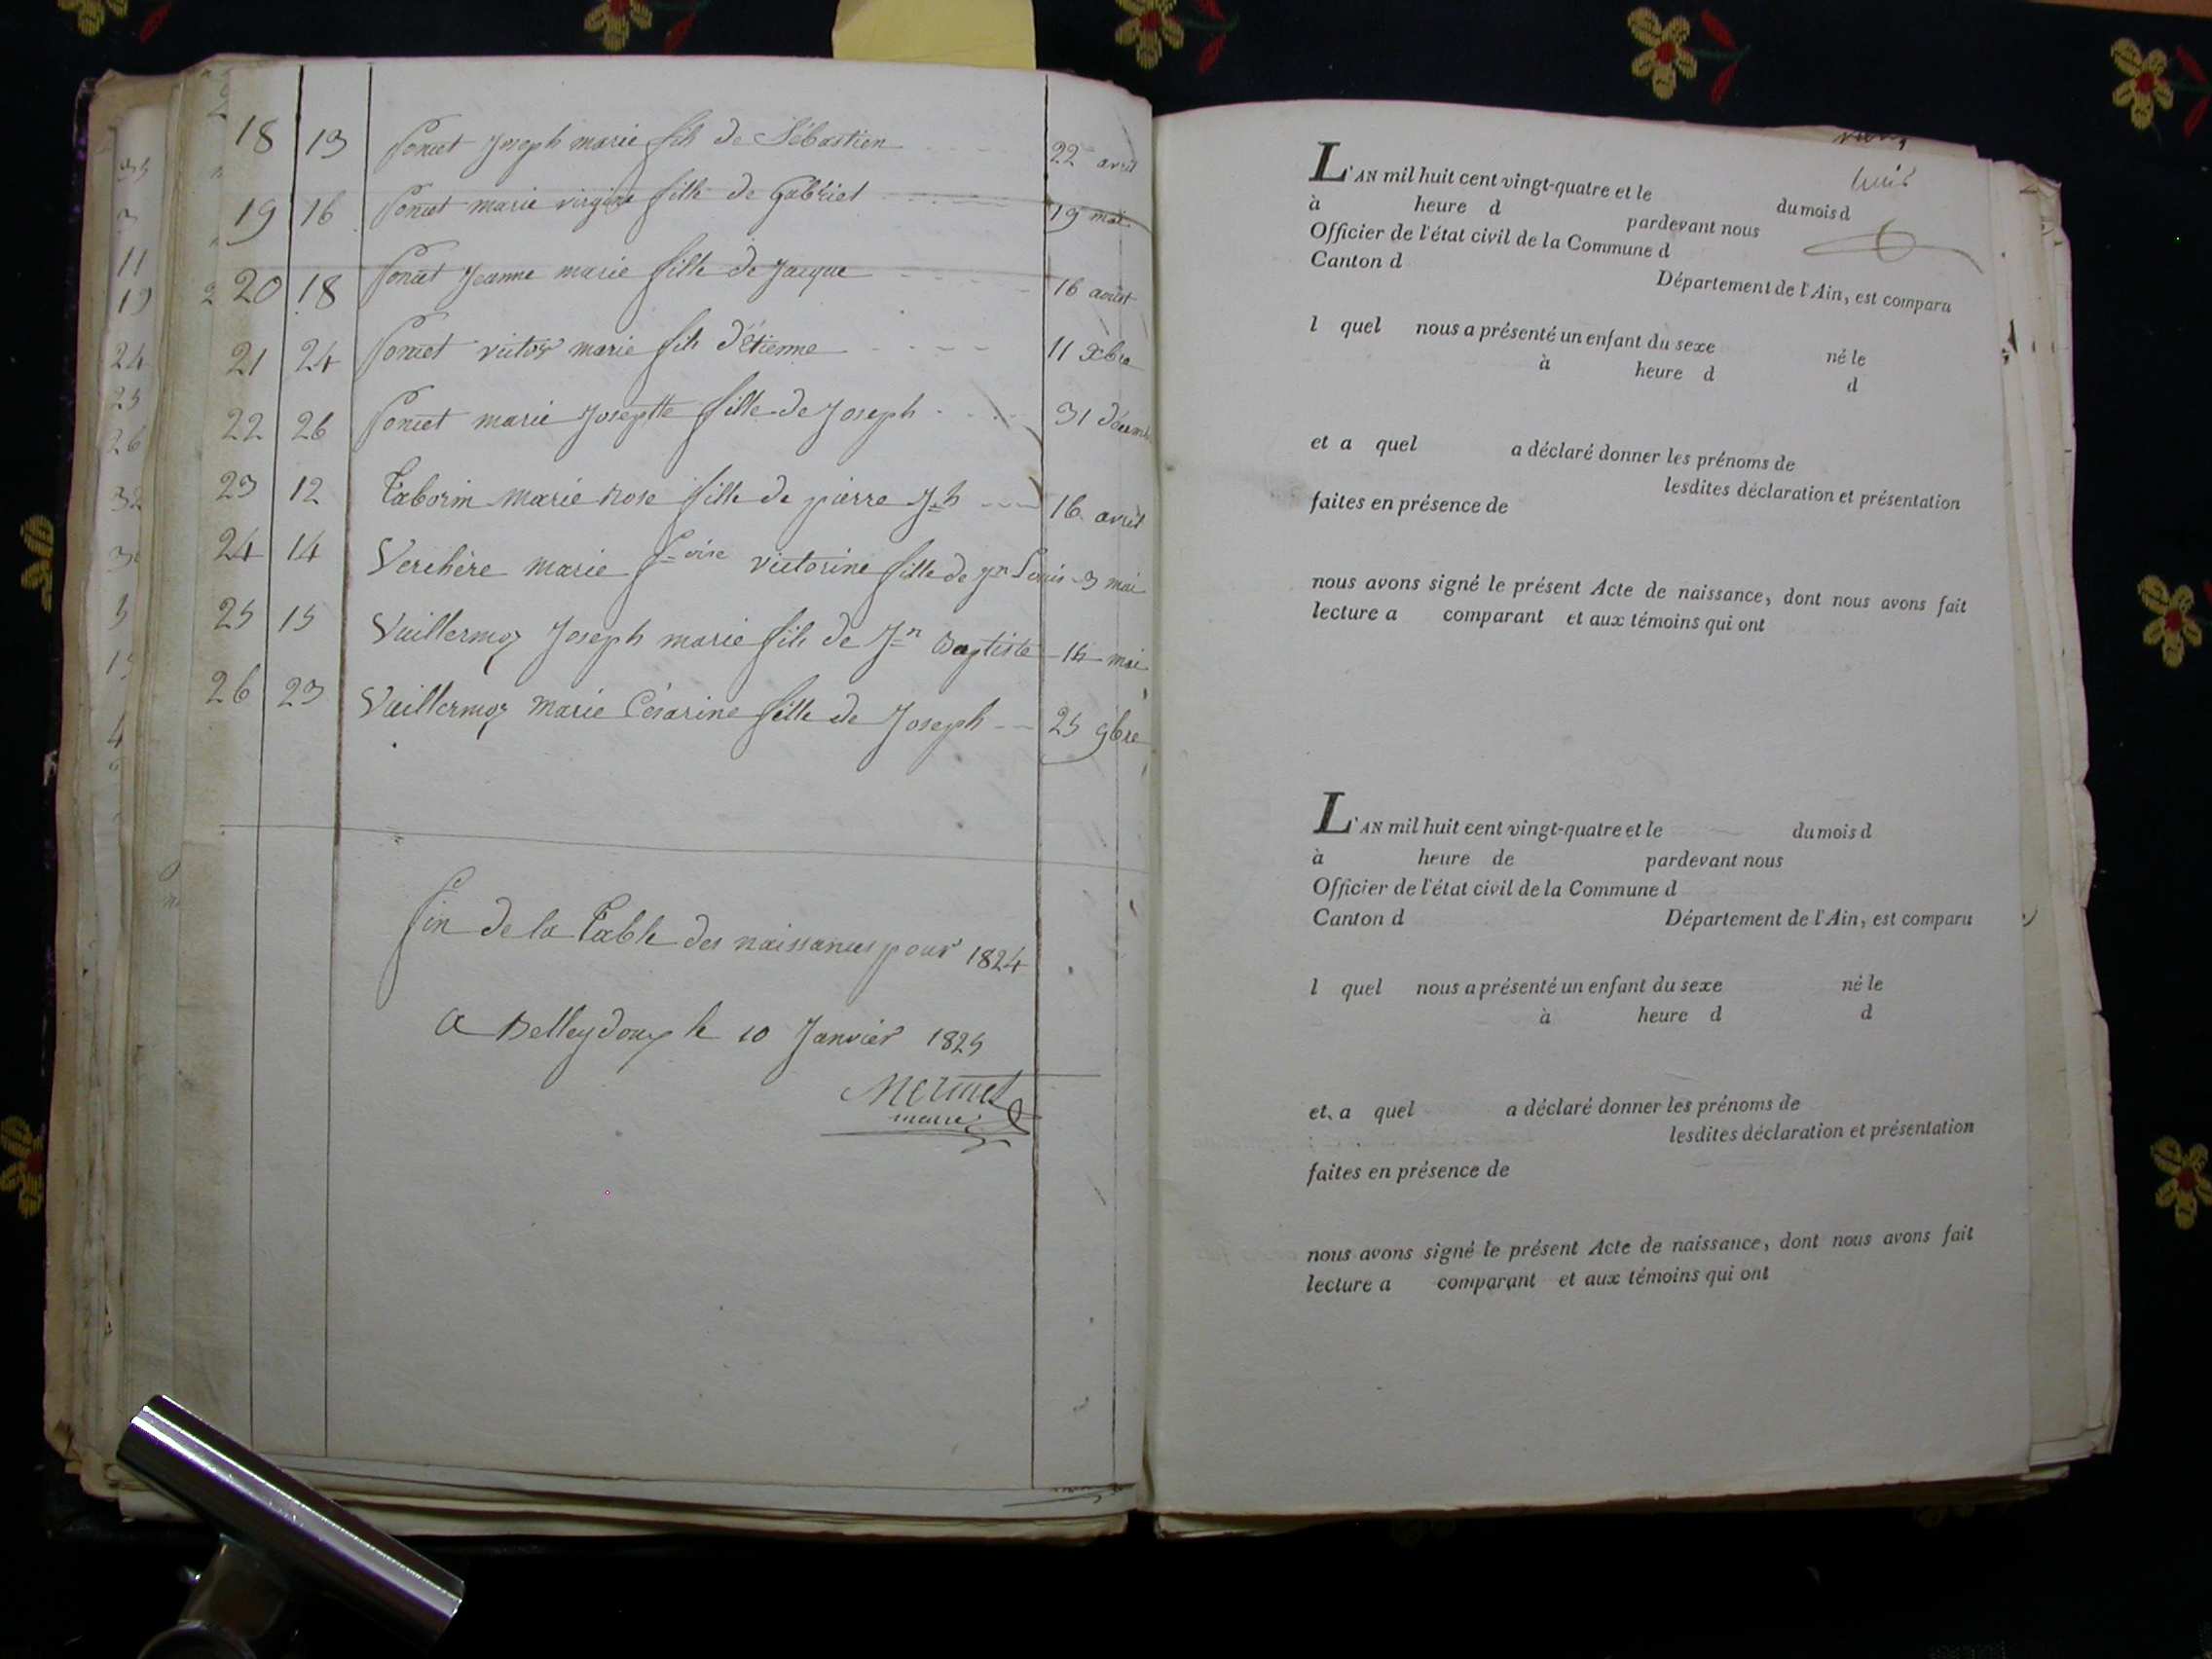 18 13 Poncet Joseph marie fils de Sébastien 22 avril
19 16 Poncet marie virginie fille de Gabriel 19 mai
20 18 Poncet Jeanne marie fille de Jacque 16 aout
21 24 Poncet victor marie fils d'Etienne 11 xbre
22 26 Poncet marie Josephte fille de Joseph 31 décemb
23 12 Taborin marie Rose fille de pierre Jh 16 avril
24 14 Verchère marie Fcoise victorine fille de Jn Louis 3 mai
25 15 Vuillermoz Joseph marie fils de Jn Baptiste 16 mai
26 23 Vuillermoz Marie Césarine fille de Joseph 25 9bre
fin de la Table des naissances pour 1824
a Belleydoux le 10 Janvier 1825
Mermet
maire
L'AN mil huit cent vingt-quatre et le du mois d
à heure d pardevant nous
Officier de l'état civil de la Commune d
Canton d Département de l'Ain, est comparu
l quel nous a présenté un enfant du sexe né le
à heure d d
et a quel a déclaré donner les prénoms de
lesdites déclaration et présentation
faites en présence de
nous avons signé le présent Acte de naissance, dont nous avons fait
lecture a comparant et aux témoins qui ont
L'AN mil huit cent vingt-quatre et le du mois d
à heure de pardevant nous
Officier de l'état civil de la Commune d
Canton d Département de l'Ain, est comparu
l quel nous a présenté un enfant du sexe né le
à heure d d
et a quel a déclaré donner les prénoms de
lesdites déclaration et présentation
faites en présence de
nous avons signé le présent Acte de naissance, dont nous avons fait
lecture a comparant et aux témoins qui ont